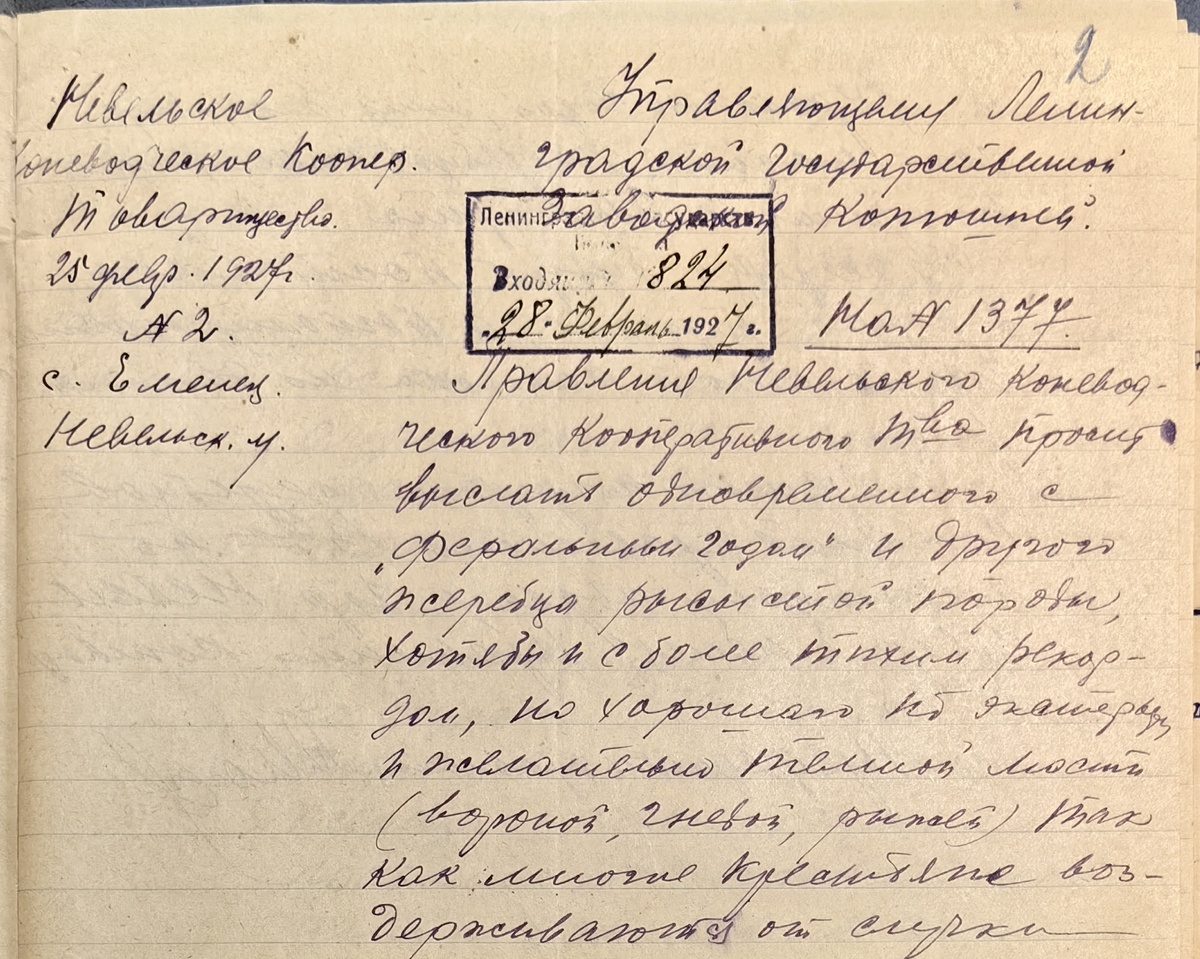 2
Невельское
Коневодческое Коопер.
Товарищество.
25 февр. 1927г.
№ 2.
с. Еменец.
Невельск. у.
Управляющему Ленин-
градской Государственной
Заводской Конюшней.
Ленингр Государств.
Входящий 824
„28" Февраль 1927 г.
На № 1377.
Правление Невельского Коневод-
ческого Кооперативного Тва просит
выслать одновременного с
„Феральным Годом" и другого
жеребца рысистой породы,
хотябы и с боле тихим рекор-
дом, но хорошаго по экстерьеру
и желательно темной масти
(вороной, гнедой, рыжей) так
как многие крестьяне воз-
держиваются от случки